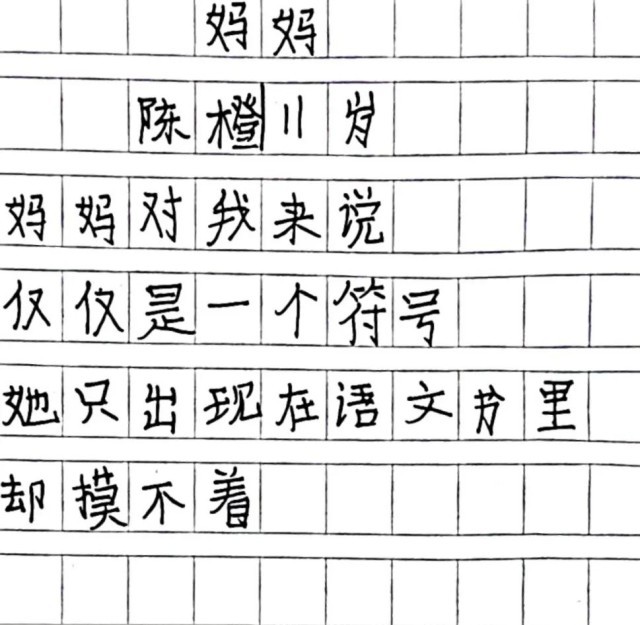 妈妈
陈橙11岁
妈妈对我来说
仅仅是一个符号
她只出现在语文书里
却摸不着